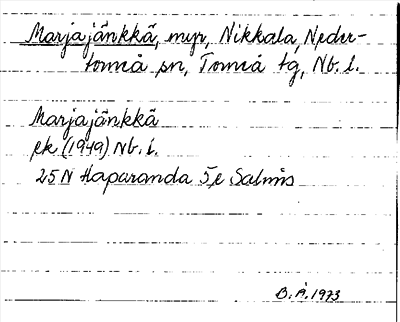 Marjajänkkä, myr, Nikkala, Neder-
torneå sn, Torneå tg, Nb. l.
Marjajänkkä
ek (1949) Nb. l.
25 N Haparanda 5 e Salmis
B. Å. 1973